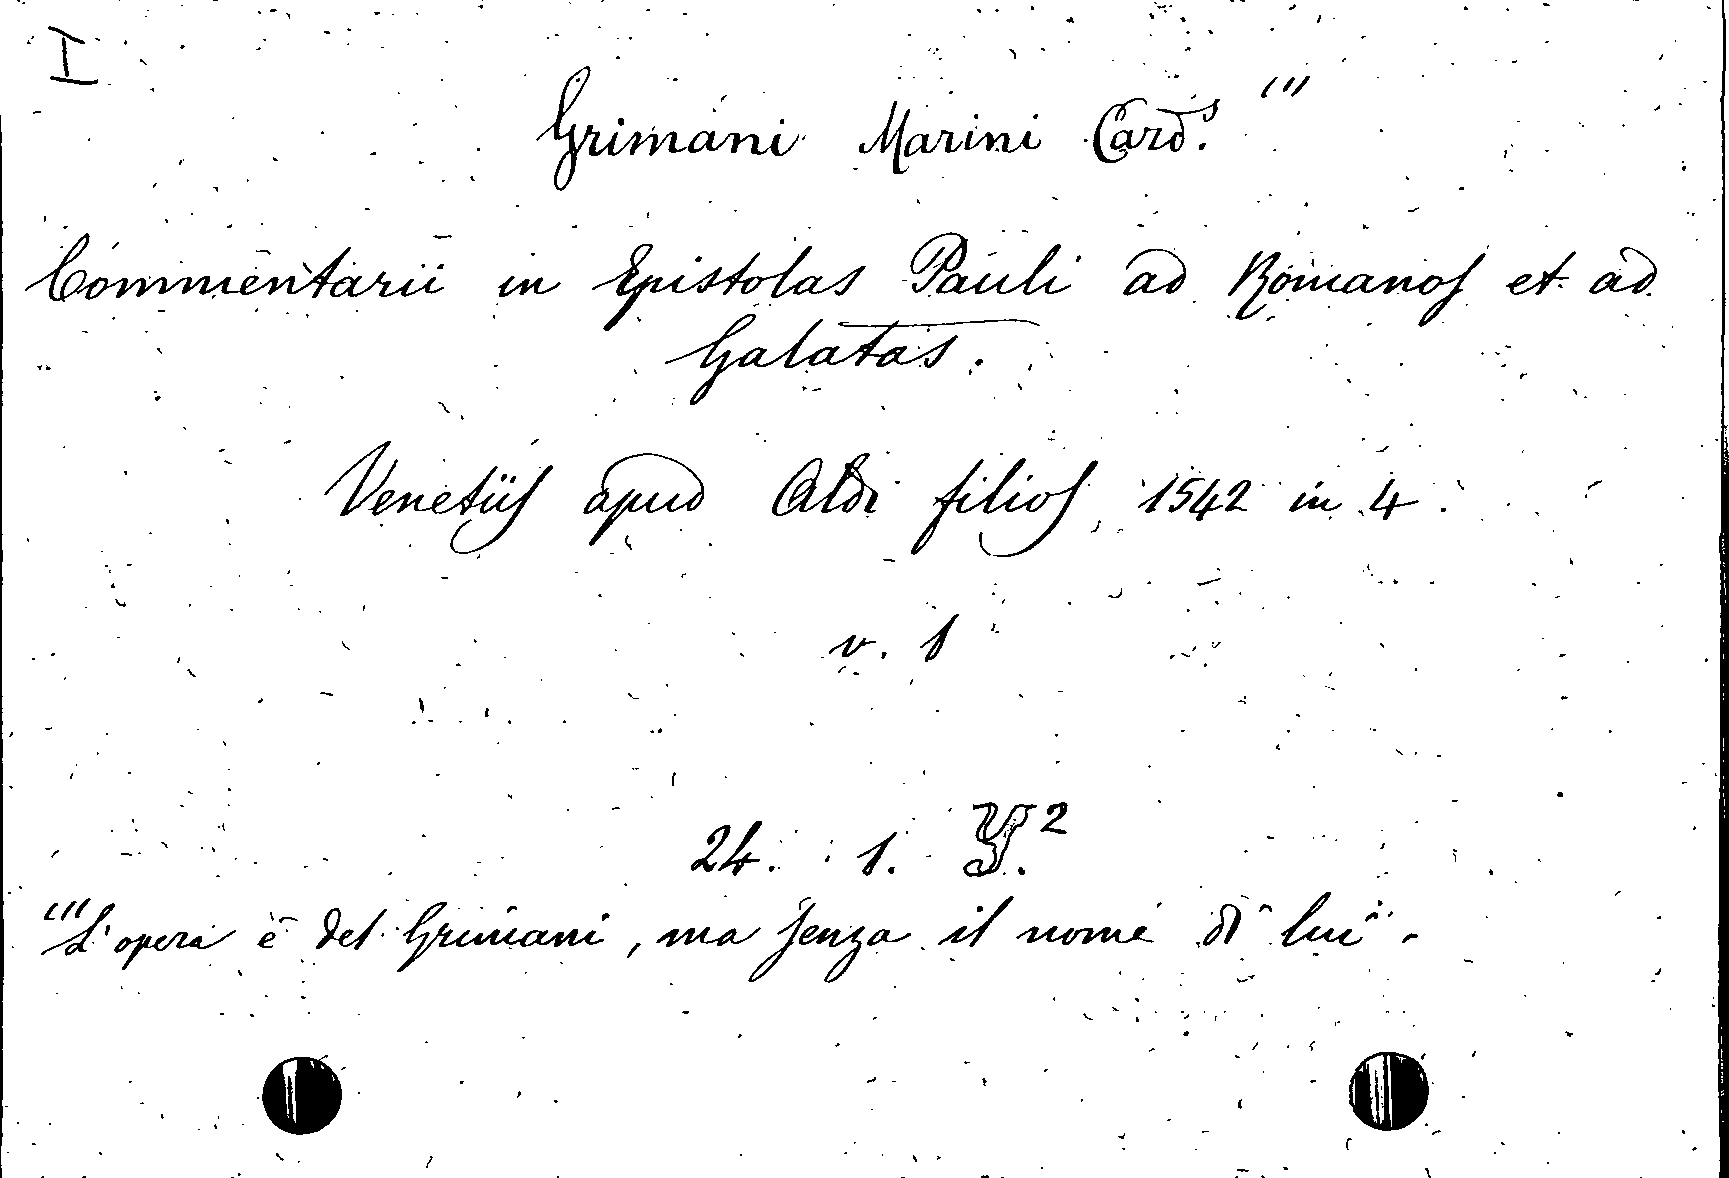 I
Grimani Marini Card.s (1)
Commentarii in Epistolas Pauli ad Romanos et ad
Galatas.
Venetiis apud Aldi filios 1542 in 4
v. 1
24. 1. Y.2
(1) L'opera è del Grimani, ma senza il nome di lui.